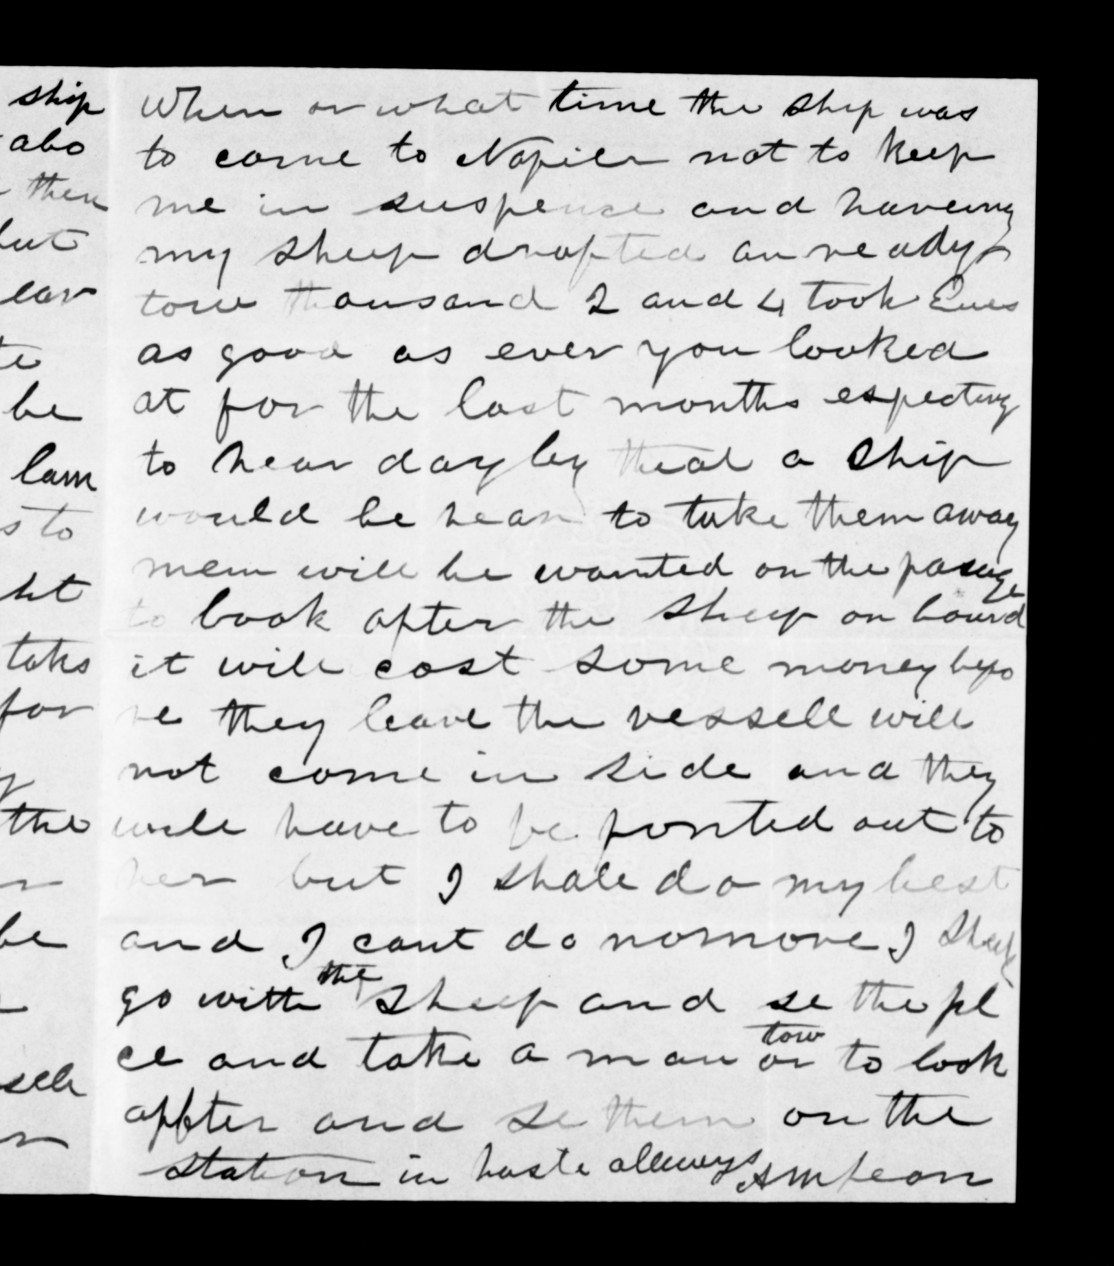 ship
abo
then
but
ear
te
be
lam
s to
ht
taks
for
y
the
be
sell
When or what time the ship was
to come to Napier not to keep
me in suspence and haveing
my sheep drafted an ready
tow thousand 2 and 4 tooth Ewes
as good as ever you looked
at for the last months expecting
to hear day by theat a ship
would be hear to take them away
mem will be wanted on the pasage
to look after the sheep on bourd
it will cost some money befo
re they leave the vessell will
not come in side and they
will have to be ponted out to
her but I shall do my best
and I cant do nomore I shall
go with the sheep and se the pl
ce and take a man or tow to look
affter and se them on the
station in haste allways